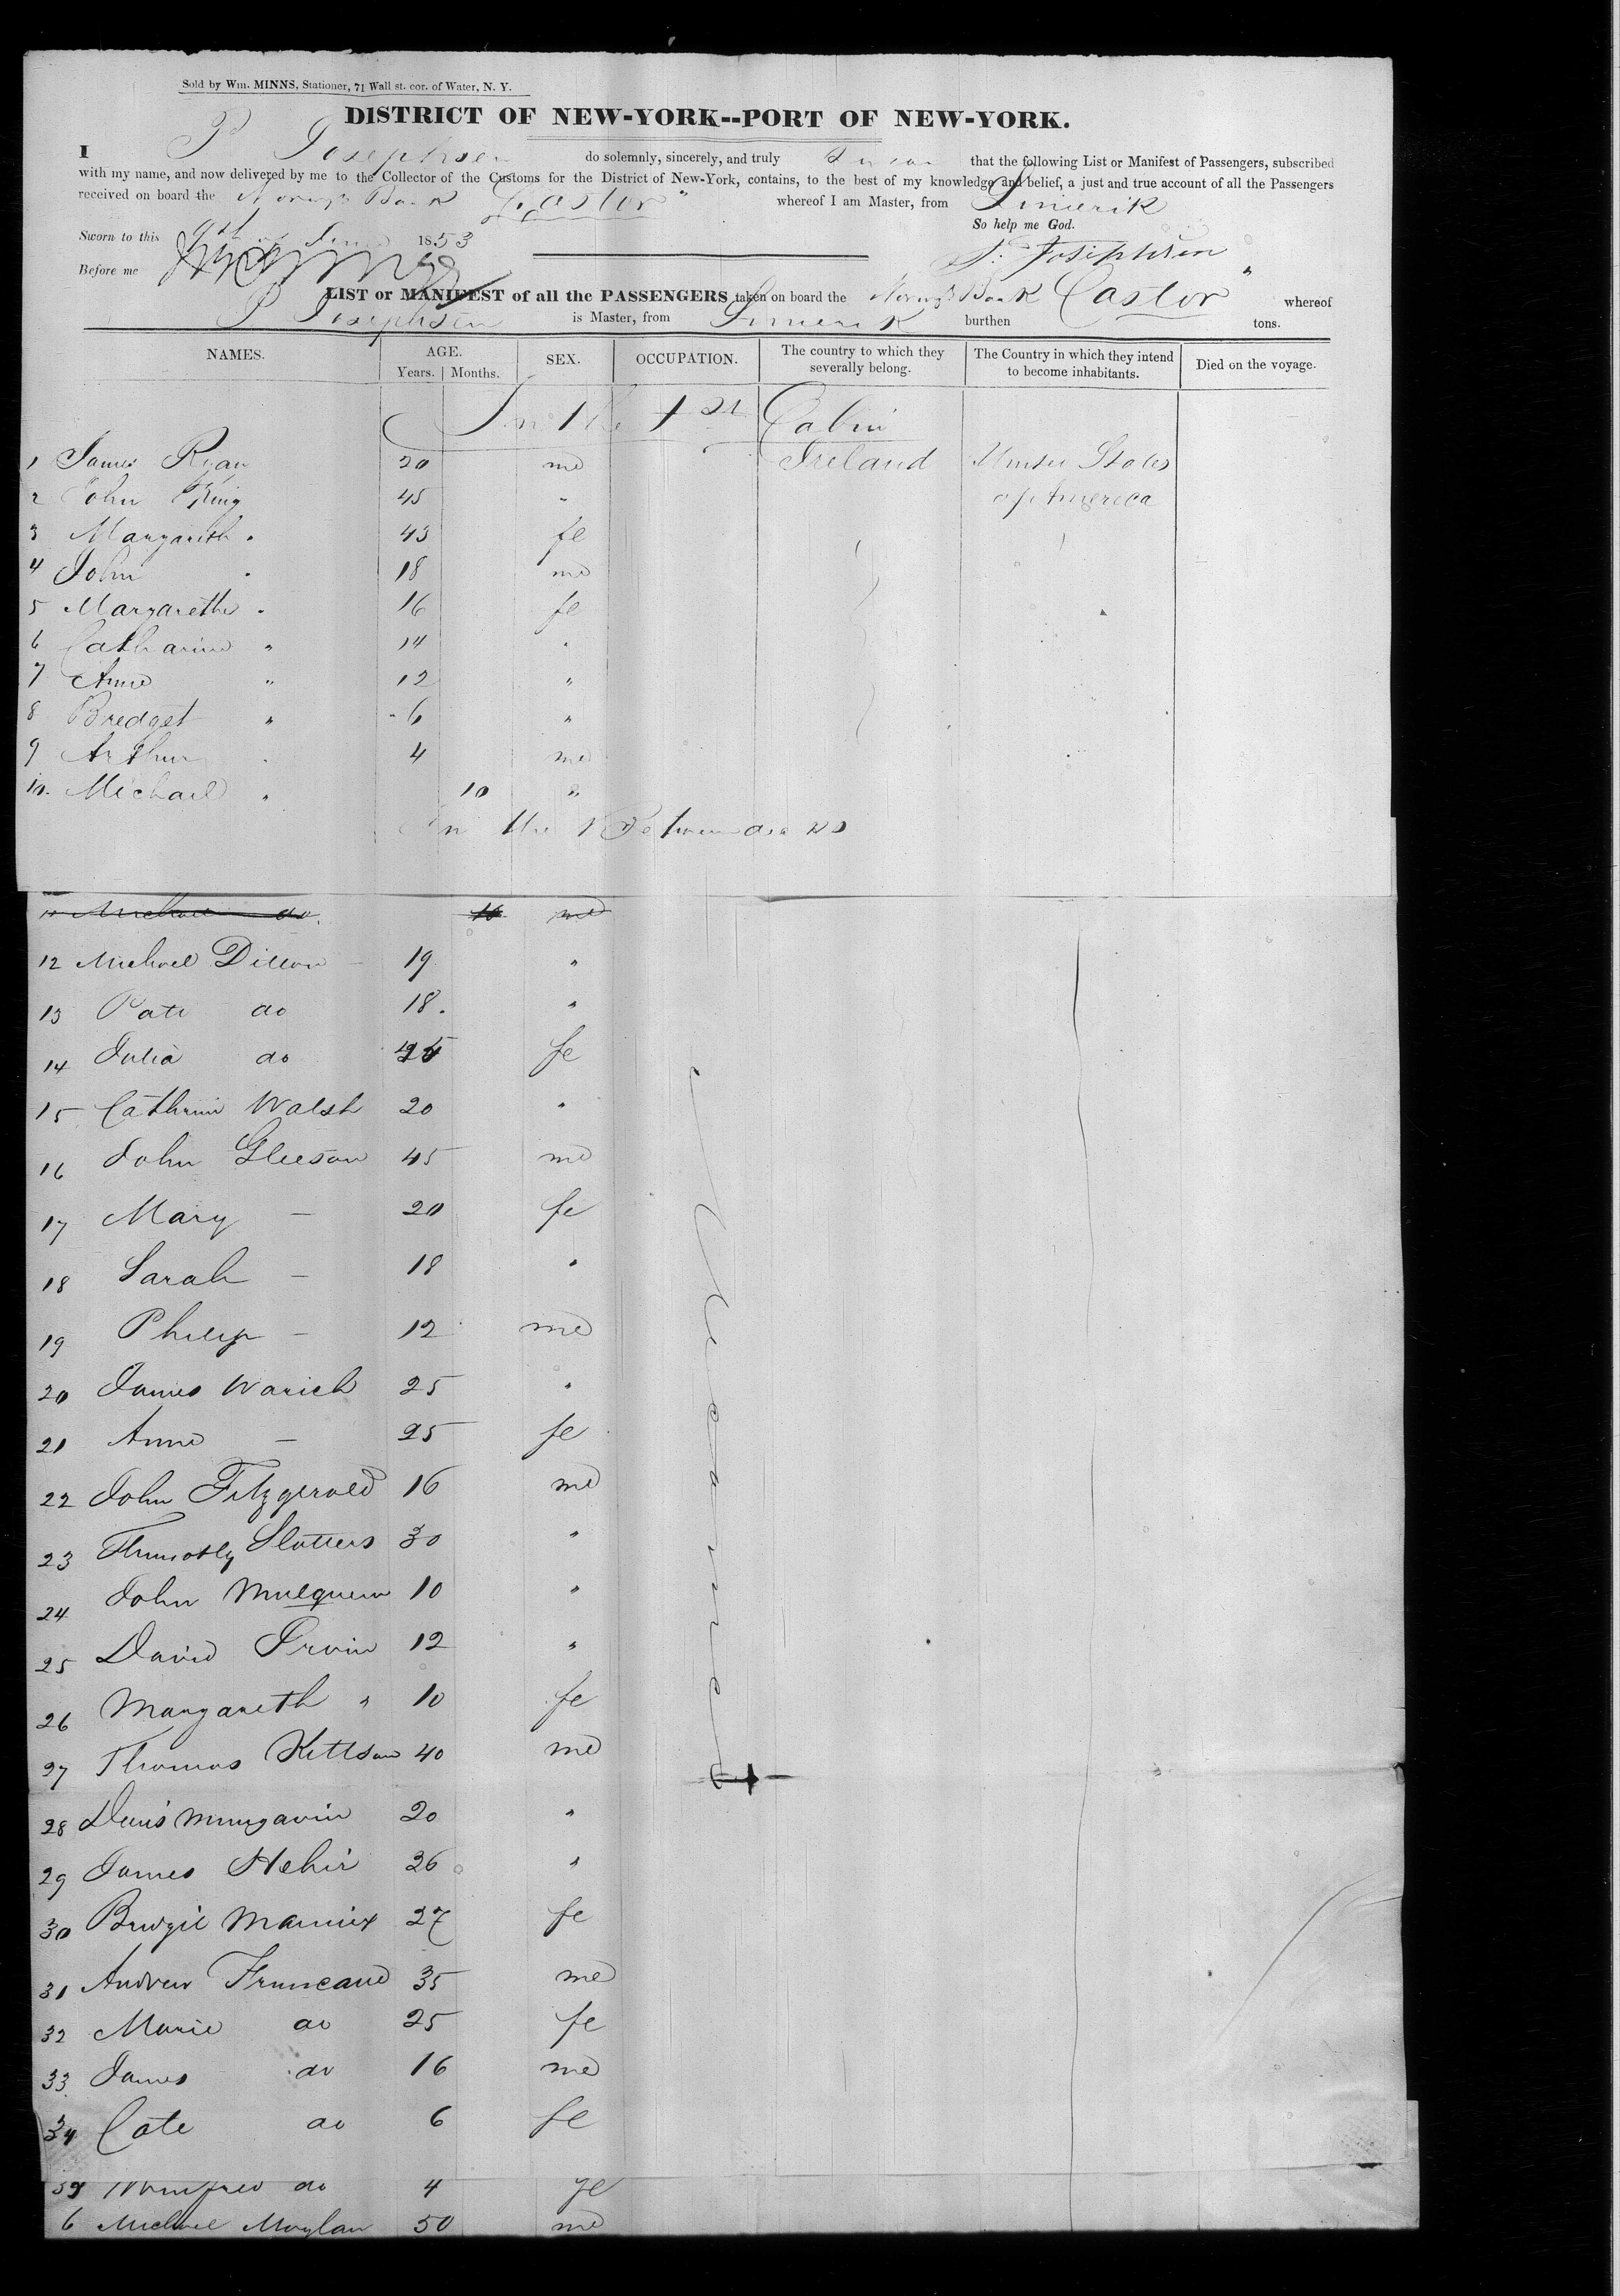 Sold by Wm. MINNS, Stationer, 71 Wall st. cor. of Water, N. Y.
DISTRICT OF NEW-YORK--PORT OF NEW-YORK.
I P Josephsen do solemnly, sincerely, and truly swear that the following List or Manifest of Passengers, subscribed
with my name, and now delivered by me to the Collector of the Customs for the District of New-York, contains, to the best of my knowledge and belief, a just and true account of all the Passengers
received on board the Norwg Bark Castor whereof I am Master, from Limerik
So help me God.
Sworn to this 9th June 1853
P. Josephsen
Before me
LIST or MANIFEST of all the PASSENGERS taken on board the Norwg Bark Castor whereof
P Josephsen is Master, from Limerik burthen tons.
NAMES. AGE. SEX. OCCUPATION. The country to which they severally belong. The Country in which they intend to become inhabitants. Died on the voyage.
Years. Months.
In the 1st Cabin
1 James Ryan 20 me Ireland United States
2 John King 45 " of America
3 Margareth " 43 fe
4 John " 18 me
5 Margarethe " 16 fe
6 Catharine " 14 "
7 Anne " 12 "
8 Bredget " 6 "
9 Arthur " 4 me
10. Michael " 10 "
In the Betweendecks
Michael do 10 me
12 Michael Dillon 19 "
13 Patt do 18. "
14 Julia do fe
15 Cathrine Walsh 20 "
16 John Gleeson 45 me
17 Mary — 20 fe
18 Sarah — 18 "
19 Philip — 12 me
20 James Warich 25 "
21 Anne — 25 fe
22 John Fitzgerald 16 me
23 Thimothy Slatters 30 "
24 John Mulquein 10 "
25 David Irvin 12 "
26 Margareth " 10 fe
27 Thomas Kittson 40 me
28 Denis Mungavin 20 "
29 James Hehir 26 "
30 Manniex 27 fe
31 Andrew 35 me
32 Marie do 25 fe
33 James do 16 me
34 Cate do 6 fe
Winifred do 4 fe
6 Michael Moylan 50 me